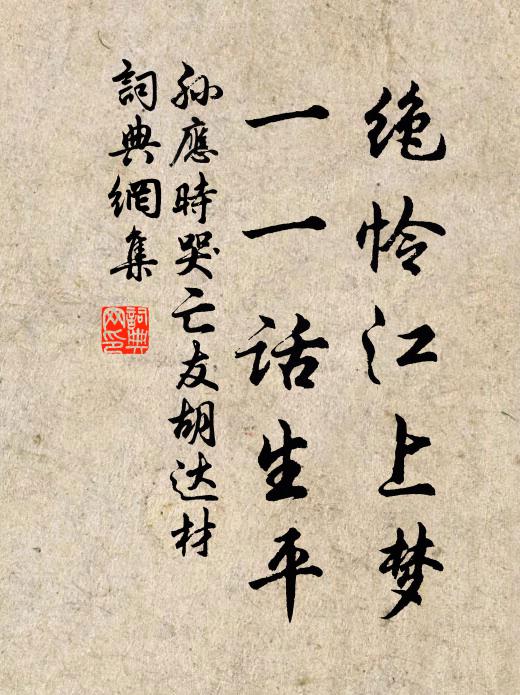 绝怜江上梦
一一话生平
孙應時哭亡友胡达材
詞典網集
詞典网印